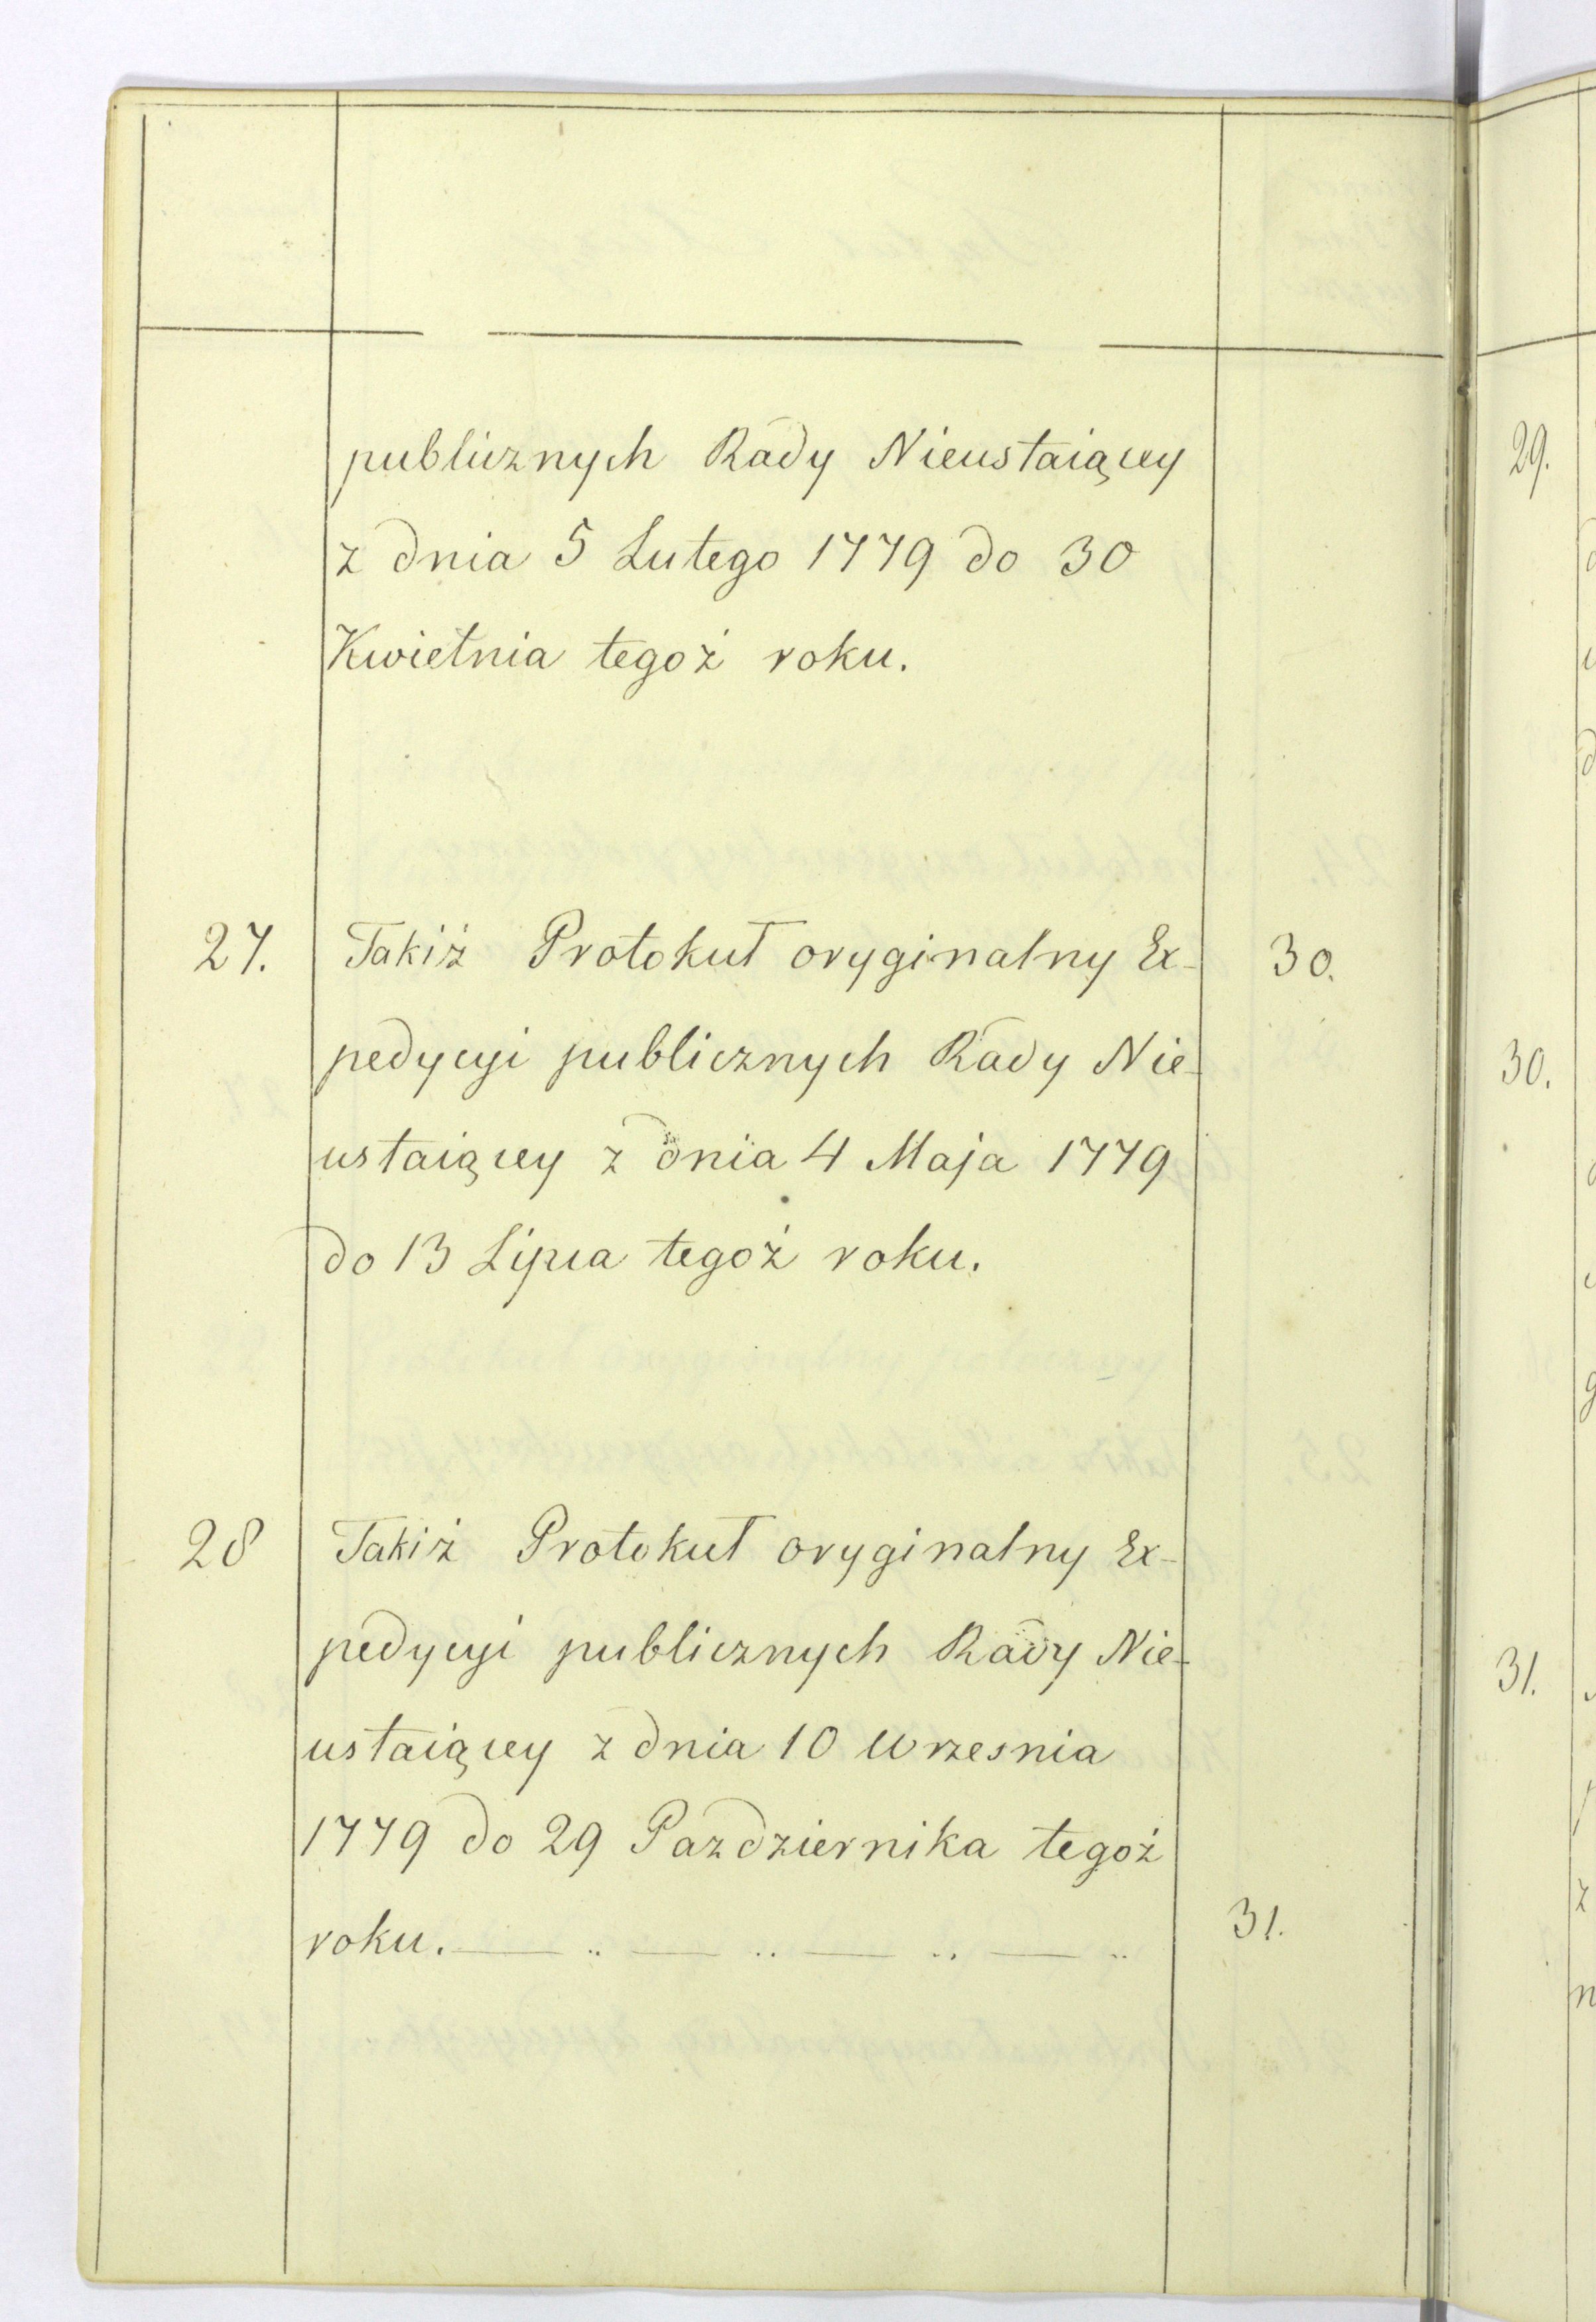 publicznych Rady Nieustaiącey
z dnia 5 Lutego 1779 do 30
Kwietnia tegoż roku.
27. Takiż Protokuł oryginalny Ex- 30.
pedycyi publicznych Rady Nie-
ustaiącey z dnia 4 Maja 1779
do 13 Lipca tegoż roku.
28 Takiż Protokuł oryginalny Ex-
pedycyi publicznych Rady Nie-
ustaiącey z dnia 10 Wrzesnia
1779 do 29 Pazdziernika tegoż
roku. — .. — .. — .. — .. 31.
29.
30.
31.